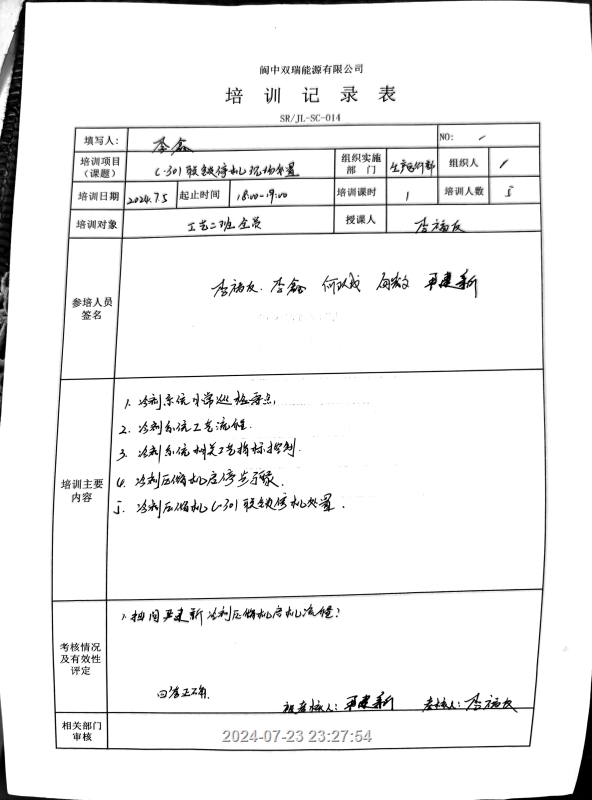 阆中双瑞能源有限公司
培训记录表
SR/JL-SC-014
填写人： 李鑫 NO： /
培训项目（课题） C-301联锁停机现场处置 组织实施部门 生产运行部 组织人 /
培训日期 2024.7.5 起止时间 18:00-19:00 培训课时 1 培训人数 5
培训对象 工艺二班全员 授课人 李福友
参培人员签名 李福友 李鑫 何欧成 严建新
培训主要内容
1. 冷剂系统日常巡检要点.
2. 冷剂系统工艺流程.
3. 冷剂系统相关工艺指标控制.
4. 冷剂压缩机启停步骤.
5. 冷剂压缩机C-301联锁停机处置.
考核情况及有效性评定
1. 抽问严建新冷剂压缩机启机流程?
回答正确.
被考核人: 严建新 考核人: 李福友
相关部门审核
2024-07-23 23:27:54